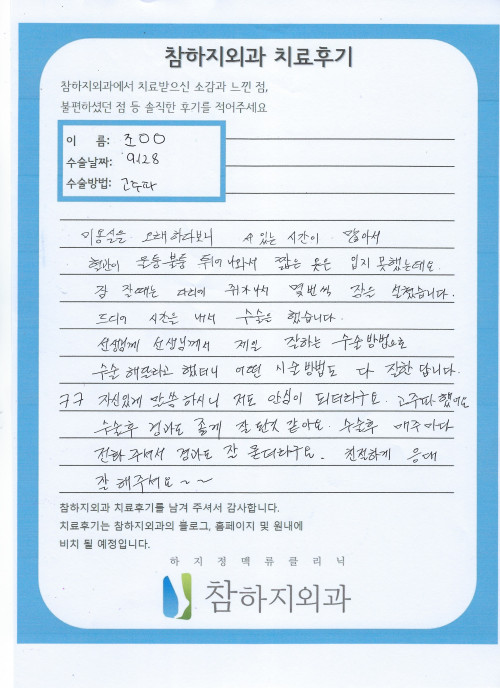 참하지외과 치료후기
참하지외과에서 치료받으신 소감과 느낀 점,
불편하셨던 점 등 솔직한 후기를 적어주세요
이 름: 조OO
수술날짜: 9/28
수술방법: 고주파
미용실을 오래하다보니 서 있는 시간이 많아서
혈관이 울퉁불퉁 튀어 나와서 짧은 옷은 입지 못했는데요.
잠 잘때는 다리에 쥐가나서 몇번씩 잠을 설쳤습니다.
드디어 시간을 내서 수술을 했습니다.
선생님께 선생님께서 제일 잘하는 수술방법으로
수술 해달라고 했더니 어떤 시술방법도 다 잘한답니다.
ㅋㅋ 자신있게 말씀하시니 저도 안심이 되더라구요. 고주파했어요
수술후 경과도 좋게 잘 된것 같아요. 수술후 매주마다
전화 주셔서 경과도 잘 묻더라구요. 친절하게 응대
잘 해주셔요~~
참하지외과 치료후기를 남겨 주셔서 감사합니다.
치료후기는 참하지외과의 블로그, 홈페이지 및 원내에
비치 될 예정입니다.
하지정맥류클리닉
참하지외과